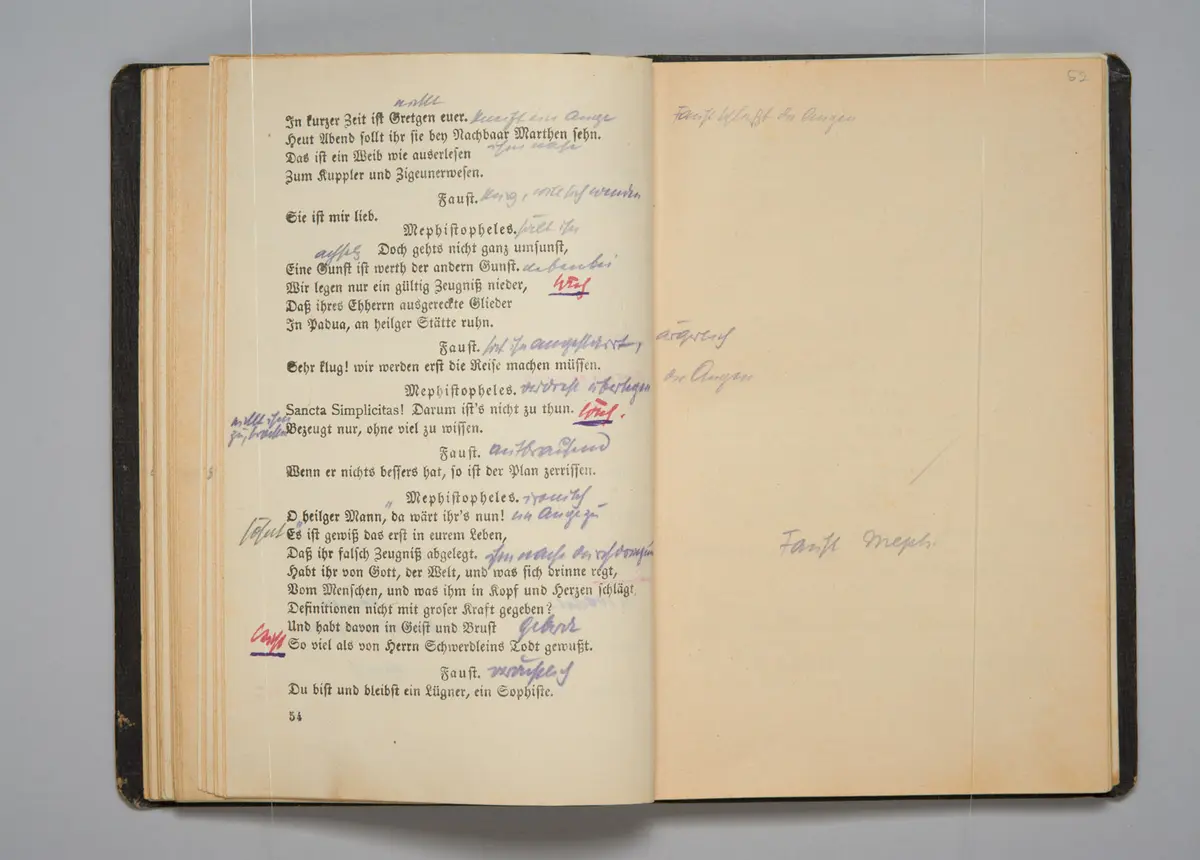 In kurzer Zeit ist Gretgen euer.
Heut Abend sollt ihr sie bey Nachbaar Marthen sehn.
Das ist ein Weib wie auserlesen
Zum Kuppler und Zigeunerwesen.
Faust.
Sie ist mir lieb.
Mephistopheles.
Doch gehts nicht ganz umsunst,
Eine Gunst ist werth der andern Gunst.
Wir legen nur ein gültig Zeugniß nieder,
Daß ihres Ehherrn ausgereckte Glieder
In Padua, an heilger Stätte ruhn.
Faust. ärgerlich
Sehr klug! wir werden erst die Reise machen müssen.
Mephistopheles. überlegen
Sancta Simplicitas! Darum ist's nicht zu thun.
Bezeugt nur, ohne viel zu wissen.
Faust. aufbrausend
Wenn er nichts bessers hat, so ist der Plan zerrissen.
Mephistopheles. ironisch
O heilger Mann, da wärt ihr's nun!
Es ist gewiß das erst in eurem Leben,
Daß ihr falsch Zeugniß abgelegt.
Habt ihr von Gott, der Welt, und was sich drinne regt,
Vom Menschen, und was ihm in Kopf und Herzen schlägt,
Definitionen nicht mit groser Kraft gegeben?
Und habt davon in Geist und Brust
So viel als von Herrn Schwerdleins Todt gewußt.
Faust.
Du bist und bleibst ein Lügner, ein Sophiste.
54
Faust Meph.